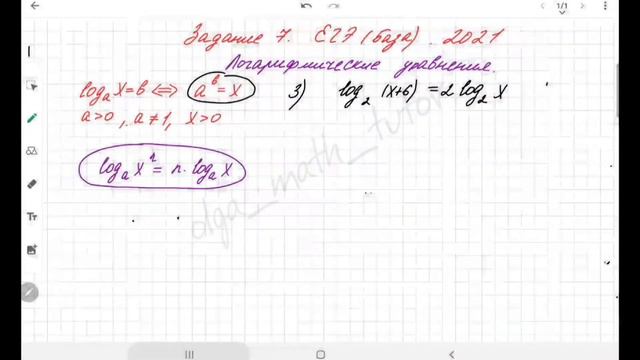 1/1
Задание 7. ЕГЭ (база). 2021
Логарифмические уравнения.
logₐ x = b ⟺ aᵇ = x
a>0, a≠1, x>0
3) log₂ (x+6) = 2 log₂ x
logₐ xⁿ = n · logₐ x
olga_math_tutor